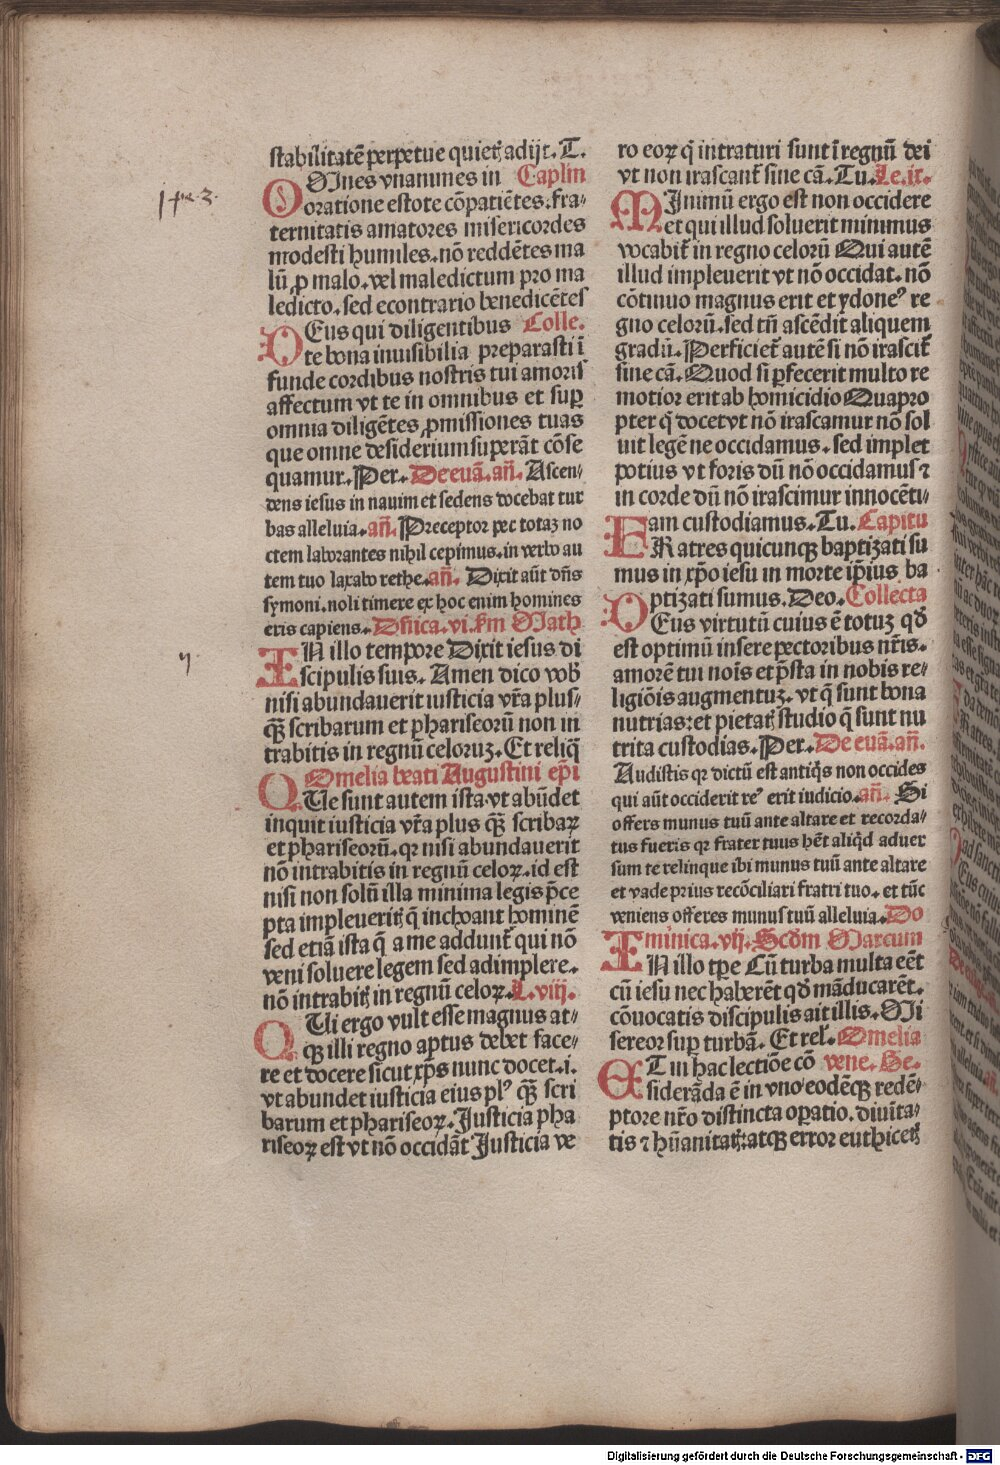 stabilitatē perpetue quietꝭ adijt. T.
OMnes vnanimes in Caplm
oratione estote cōpatiētes. fra-
ternitatis amatores misericordes
modesti humiles. nō reddētes ma
lū ꝓ malo. vel maledictum pro ma
ledicto. sed econtrario benedicētes
DEus qui diligentibus Colle.
te bona inuisibilia preparasti ī
funde cordibus nostris tui amoris
affectum vt te in omnibus et suꝑ
omnia diligētes ꝓmissiones tuas
que omne desiderium superāt cōse
quamur. Per. De euā. añ. Ascen-
dens iesus in nauim et sedens docebat tur
bas alleluia. añ. Preceptor per totaꝫ no
ctem laborantes nihil cepimus. in verbo au
tem tuo laxabo rethe. añ. Dixit aūt dñs
symoni. noli timere ex hoc enim homines
eris capiens. Dñica. vi. ẜm Math
IN illo tempore Dixit iesus di
scipulis suis. Amen dico vob̄
nisi abundauerit iusticia vr̄a plus-
qꝫ̄ scribarum et phariseorū non in
trabitis in regnū celoruꝫ. Et reliq̄
Omelia beati Augustini ep̄i
QUe sunt autem ista. vt abūdet
inquit iusticia vr̄a plus qꝫ̄ scribaꝝ
et phariseorū. qꝛ nisi abundauerit
nō intrabitis in regnū celoꝝ. id est
nisi non solū illa minima legis p̄ce
pta impleueritꝭ q̄ inchoant hominē
sed etiā ista q̄ a me addunt̄ qui nō
veni soluere legem sed adimplere.
nō intrabitꝭ in regnū celoꝝ. L. viij.
QUi ergo vult esse magnus at-
qꝫ illi regno aptus debet face-
re et docere sicut xp̄s nunc docet. i.
vt abundet iusticia eius plꝰ qꝫ̄ scri
barum et phariseoꝝ. Justicia pha
riseoꝝ est vt nō occidāt Justicia ve
ro eoꝝ q̄ intraturi sunt ī regnū dei
vt non irascant̄ sine cā. Tu. Le. ix.
MInimū ergo est non occidere
et qui illud soluerit minimus
vocabit̄ in regno celorū Qui autē
illud impleuerit vt nō occidat. nō
cōtinuo magnus erit et ydoneꝰ re
gno celorū. sed tñ ascēdit aliquem
gradū. Perficiet̄ autē si nō irascit̄
sine cā. Quod si ꝑfecerit multo re
motior erit ab homicidio Quapro
pter q̄ docet vt nō irascamur nō sol
uit legē ne occidamus. sed implet
potius vt foris dū nō occidamus ⁊
in corde dū nō irascimur innocēti-
am custodiamus. Tu. Capitu
FRatres quicunqꝫ baptizati su
mus in xp̄o iesu in morte ip̄ius ba
ptizati sumus. Deo. Collecta
DEus virtutū cuius ē totuꝫ qd̄
est optimū insere pectoribus nr̄is.
amorē tui noīs et p̄sta in nobis re-
ligiōis augmentuꝫ. vt q̄ sunt bona
nutrias: et pietatꝭ studio q̄ sunt nu
trita custodias. Per. De euā. añ.
Audistis qꝛ dictū est antiq̄s non occides
qui aūt occiderit reꝰ erit iudicio. añ. Si
offers munus tuū ante altare et recorda-
tus fueris qꝛ frater tuus hēt aliqd̄ aduer
sum te relinque ibi munus tuū ante altare
et vade prius recōciliari fratri tuo. et tūc
veniens offeres munus tuū alleluia. Do
minica. vij. Scd̄m Marcum
IN illo tꝑe Cū turba multa eēt
cū iesu nec haberēt qd̄ māducarēt.
cōuocatis discipulis ait illis. Mi
sereor suꝑ turbā. Et rel̄. Omelia
ET in hac lectiōe cō vene. Be.
siderāda ē in vno eodēqꝫ redē-
ptore nr̄o distincta oꝑatio. diuīta-
tis ⁊ hūanitatꝭ: atqꝫ error euthicetꝭ
Digitalisierung gefördert durch die Deutsche Forschungsgemeinschaft - DFG